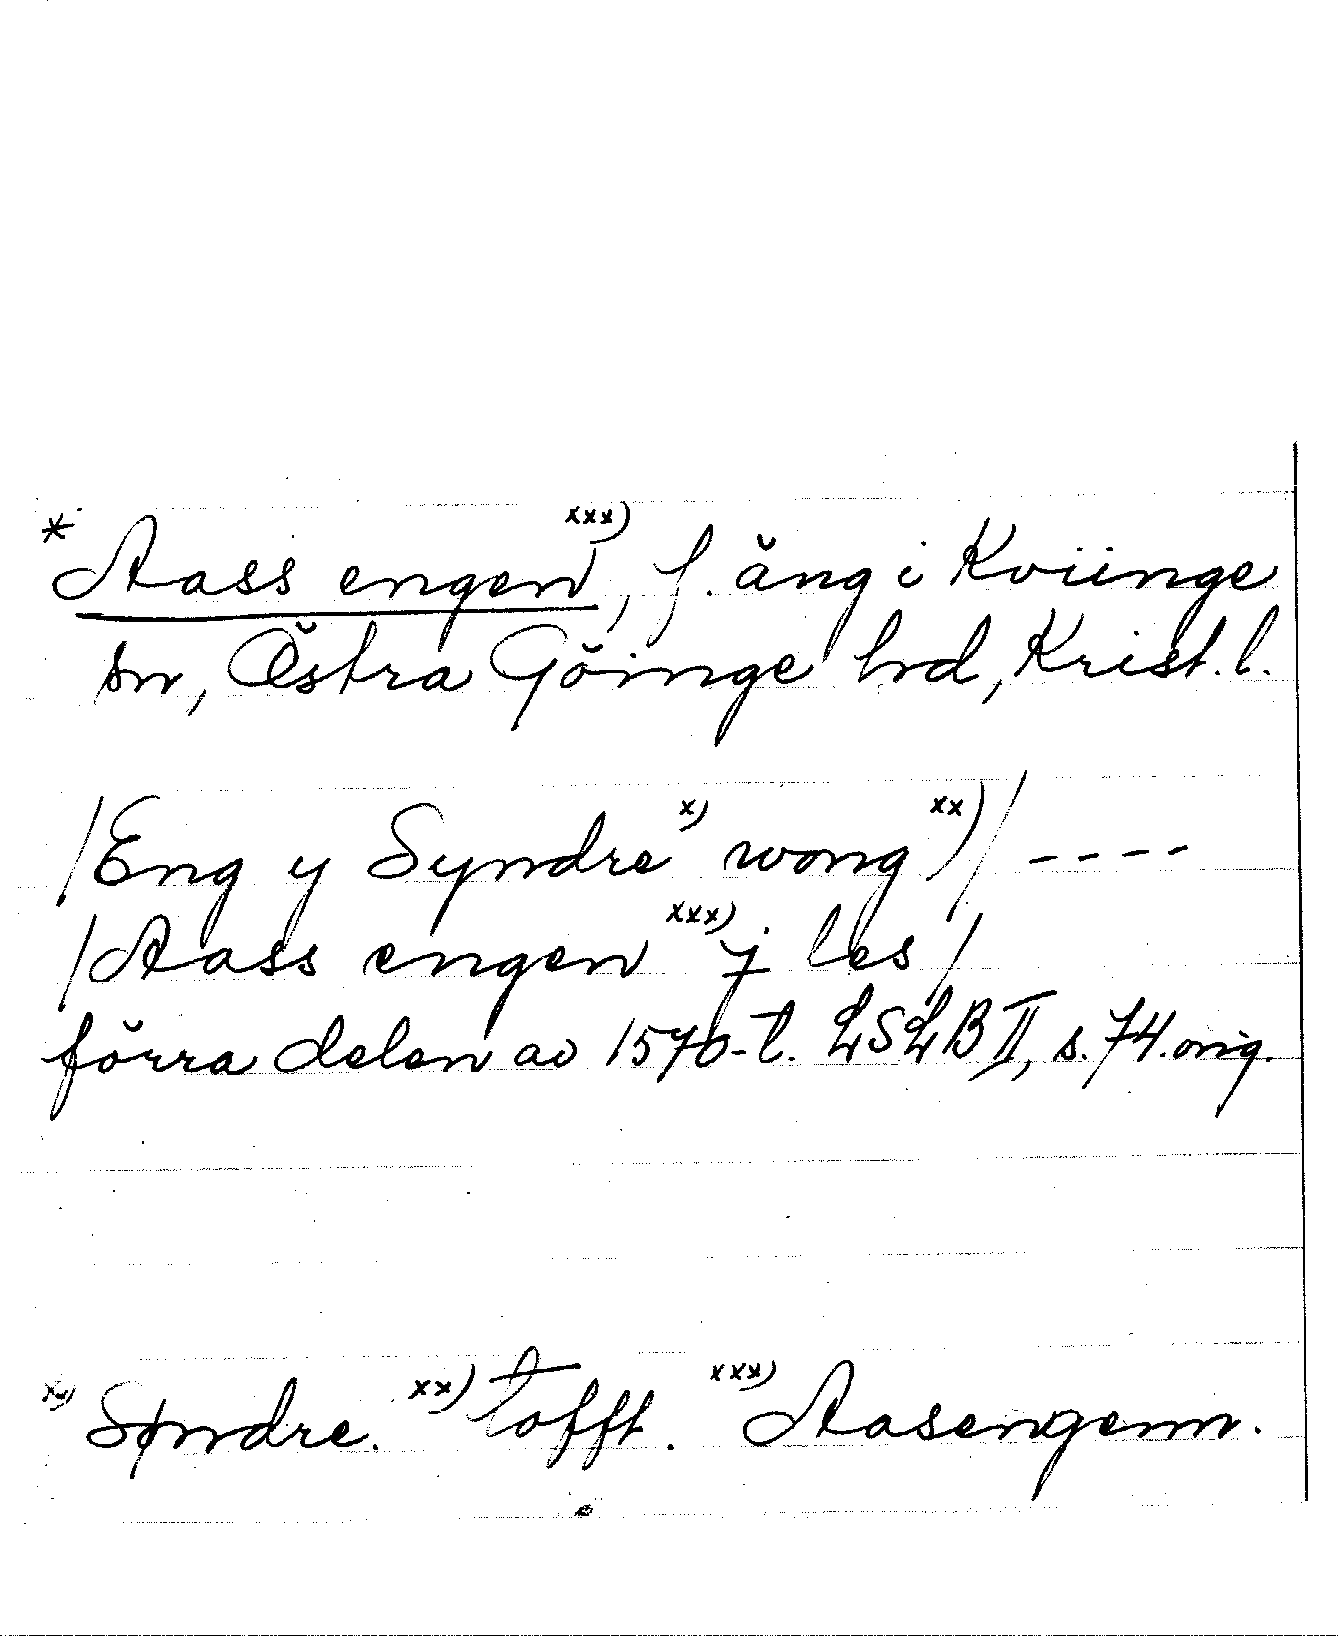 * Aass engen xxx), f. äng i Kviinge
sn, Östra Göinge hrd, Krist. l.
/Eng y Syndre x) wong xx)/ ----
/Aass engen xxx) j les/
förra delen av 1570-t. LSLB II, s. 74. orig.
x) Søndre. xx) tofft. xxx) Aasengenn.